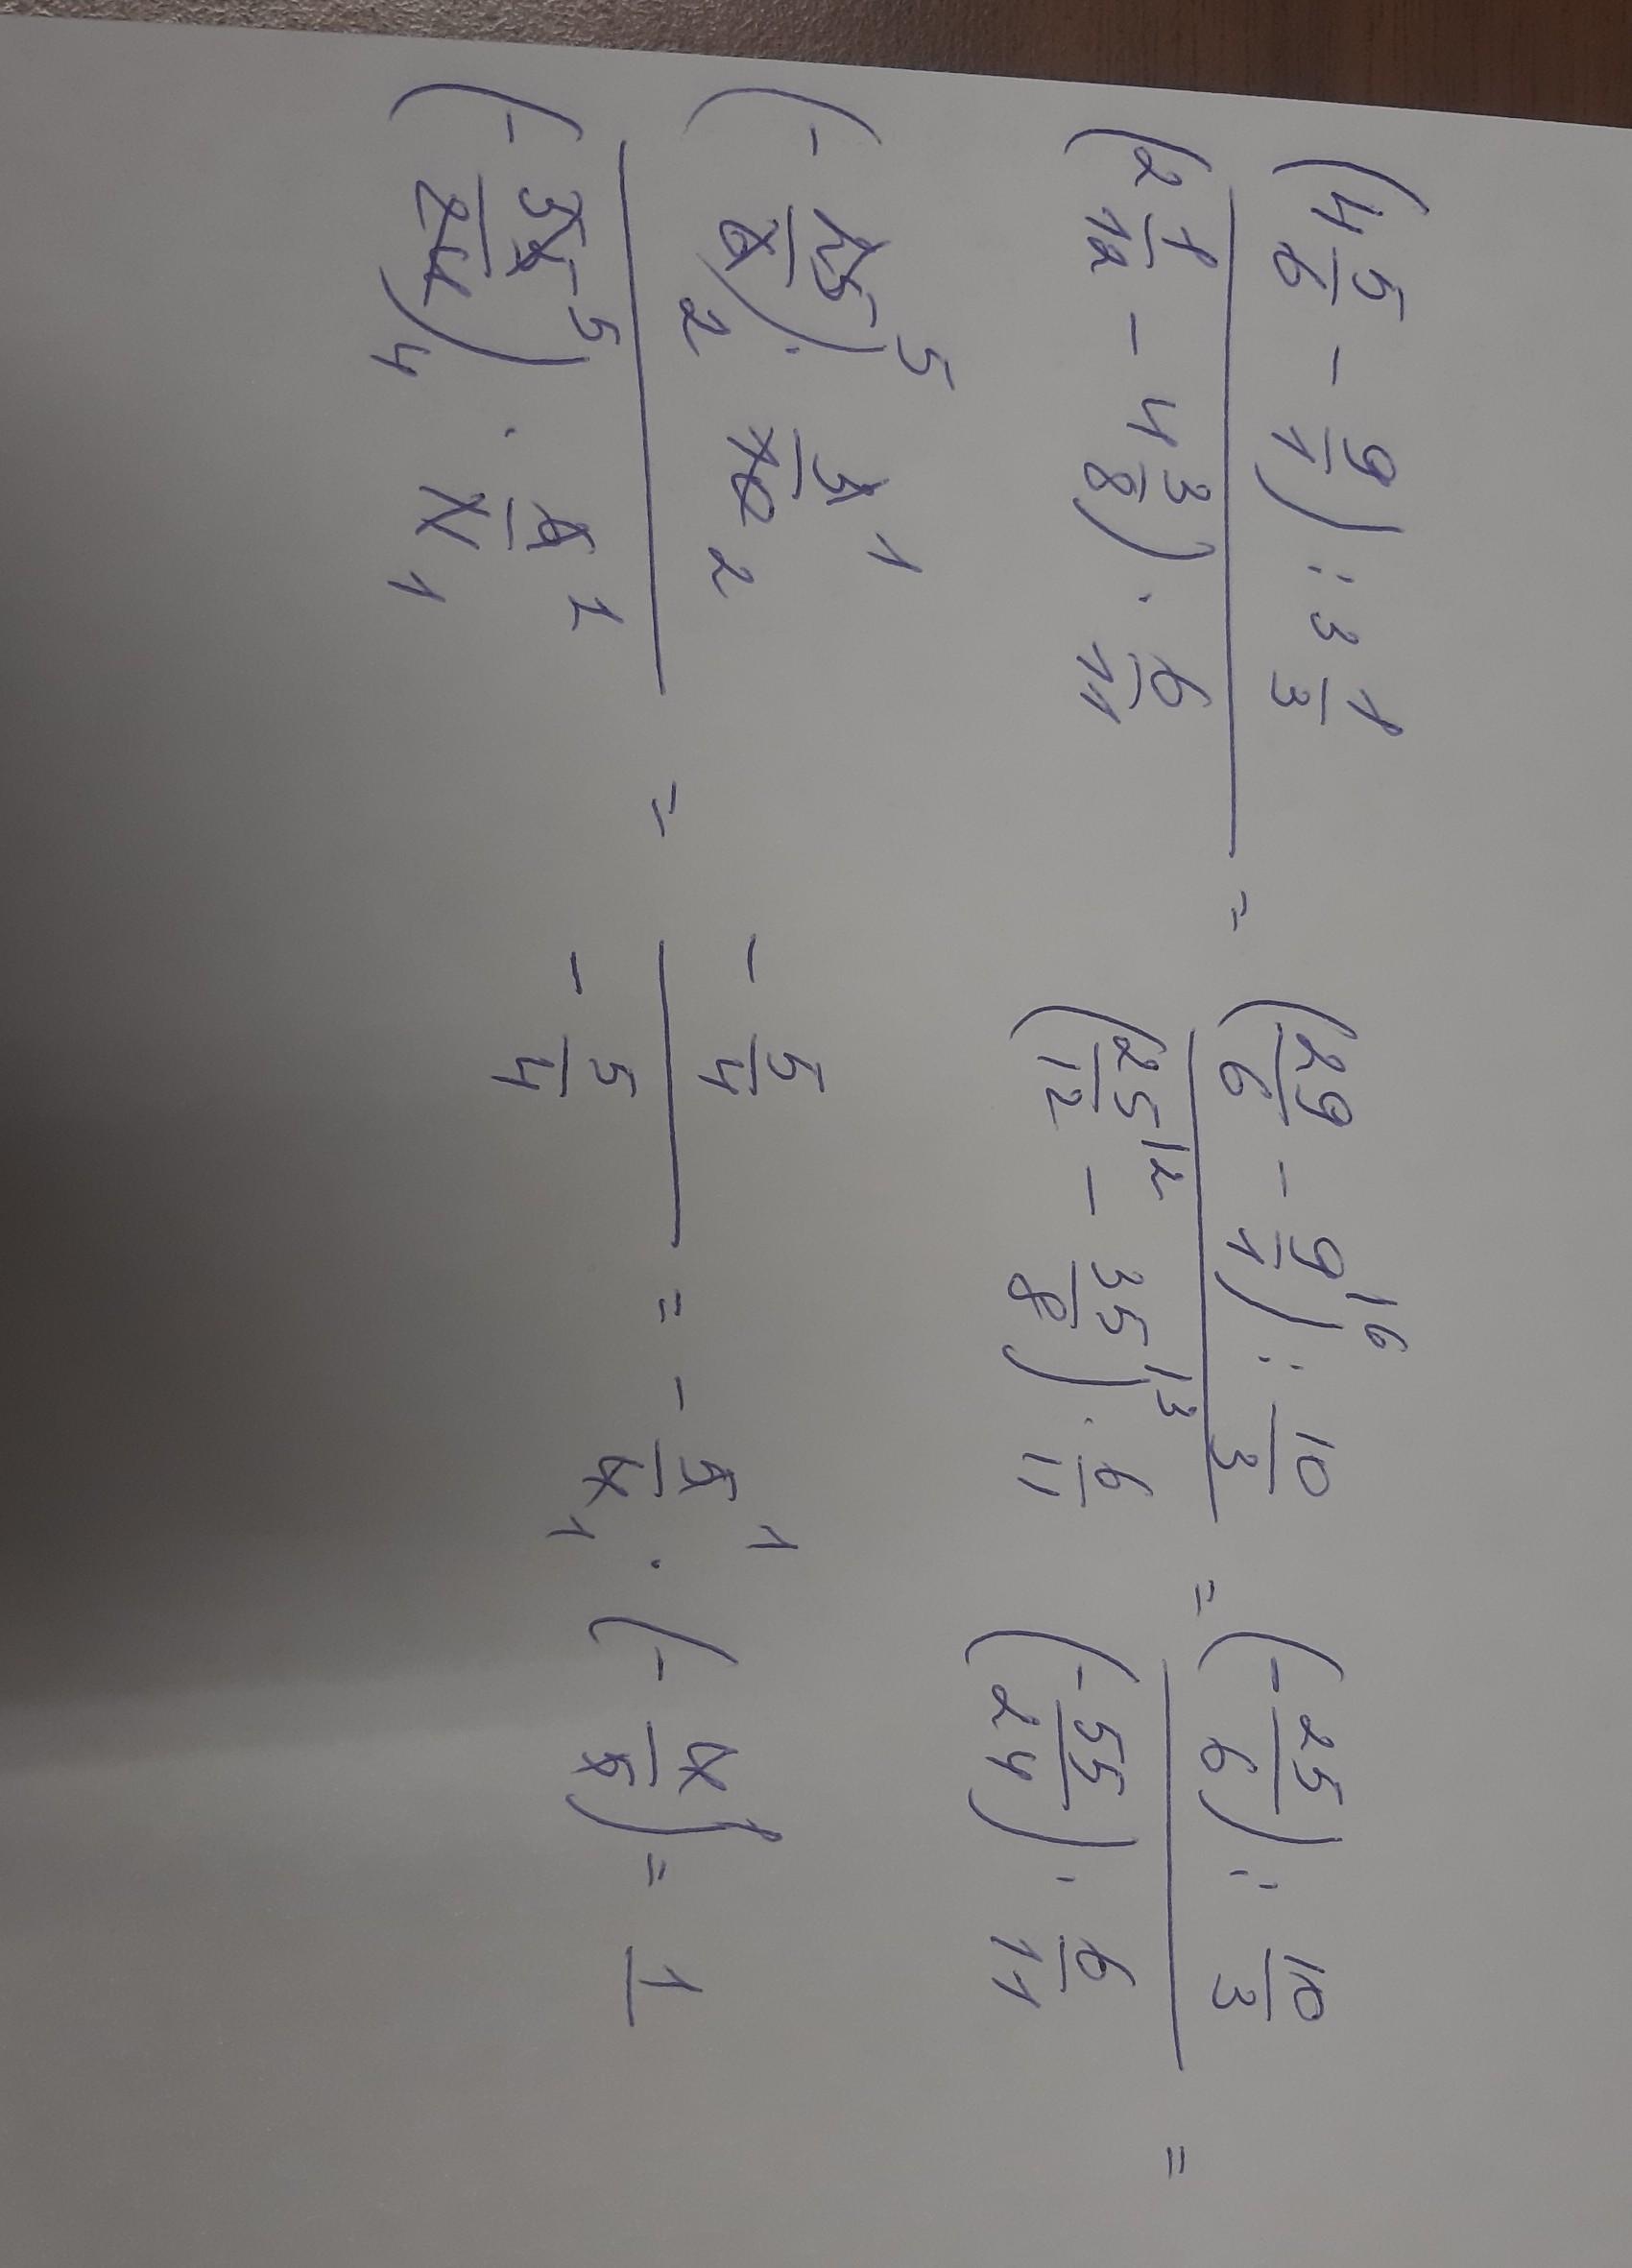 (4 5/6 - 9/1) : 3 1/3
(2 1/12 - 4 3/8) · 6/11
=
(29/6 - 9/1 |6) : 10/3
(25/12 |2 - 35/8 |3) · 6/11
=
(-25/6) : 10/3
(-55/24) · 6/11
=
(-25/6) · 3/10
5 2 1 2
(-55/24) · 6/11
5 4 1 1
=
-5/4
-5/4
= -5/4 · (-4/5) = 1
1 1 1